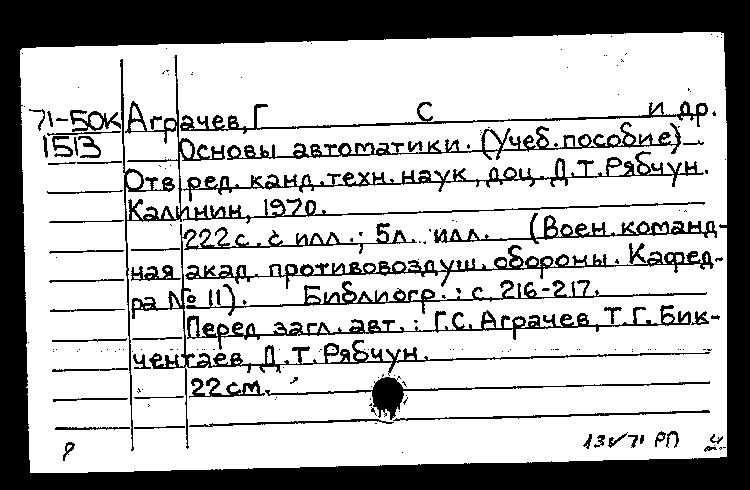 71-50К Аграчев, Г С и др.
1513 Основы автоматики. (Учеб. пособие).
Отв ред. канд. техн. наук, доц. Д.Т.Рябчун.
Калинин, 1970.
222 с. с илл.; 5л. илл. (Воен. команд-
ная акад. противовоздуш. обороны. Кафед-
ра № 11). Библиогр.: с. 216-217.
Перед загл. авт.: Г.С. Аграчев, Т.Г. Бик-
чентаев, Д.Т. Рябчун.
22 см.
71 РП